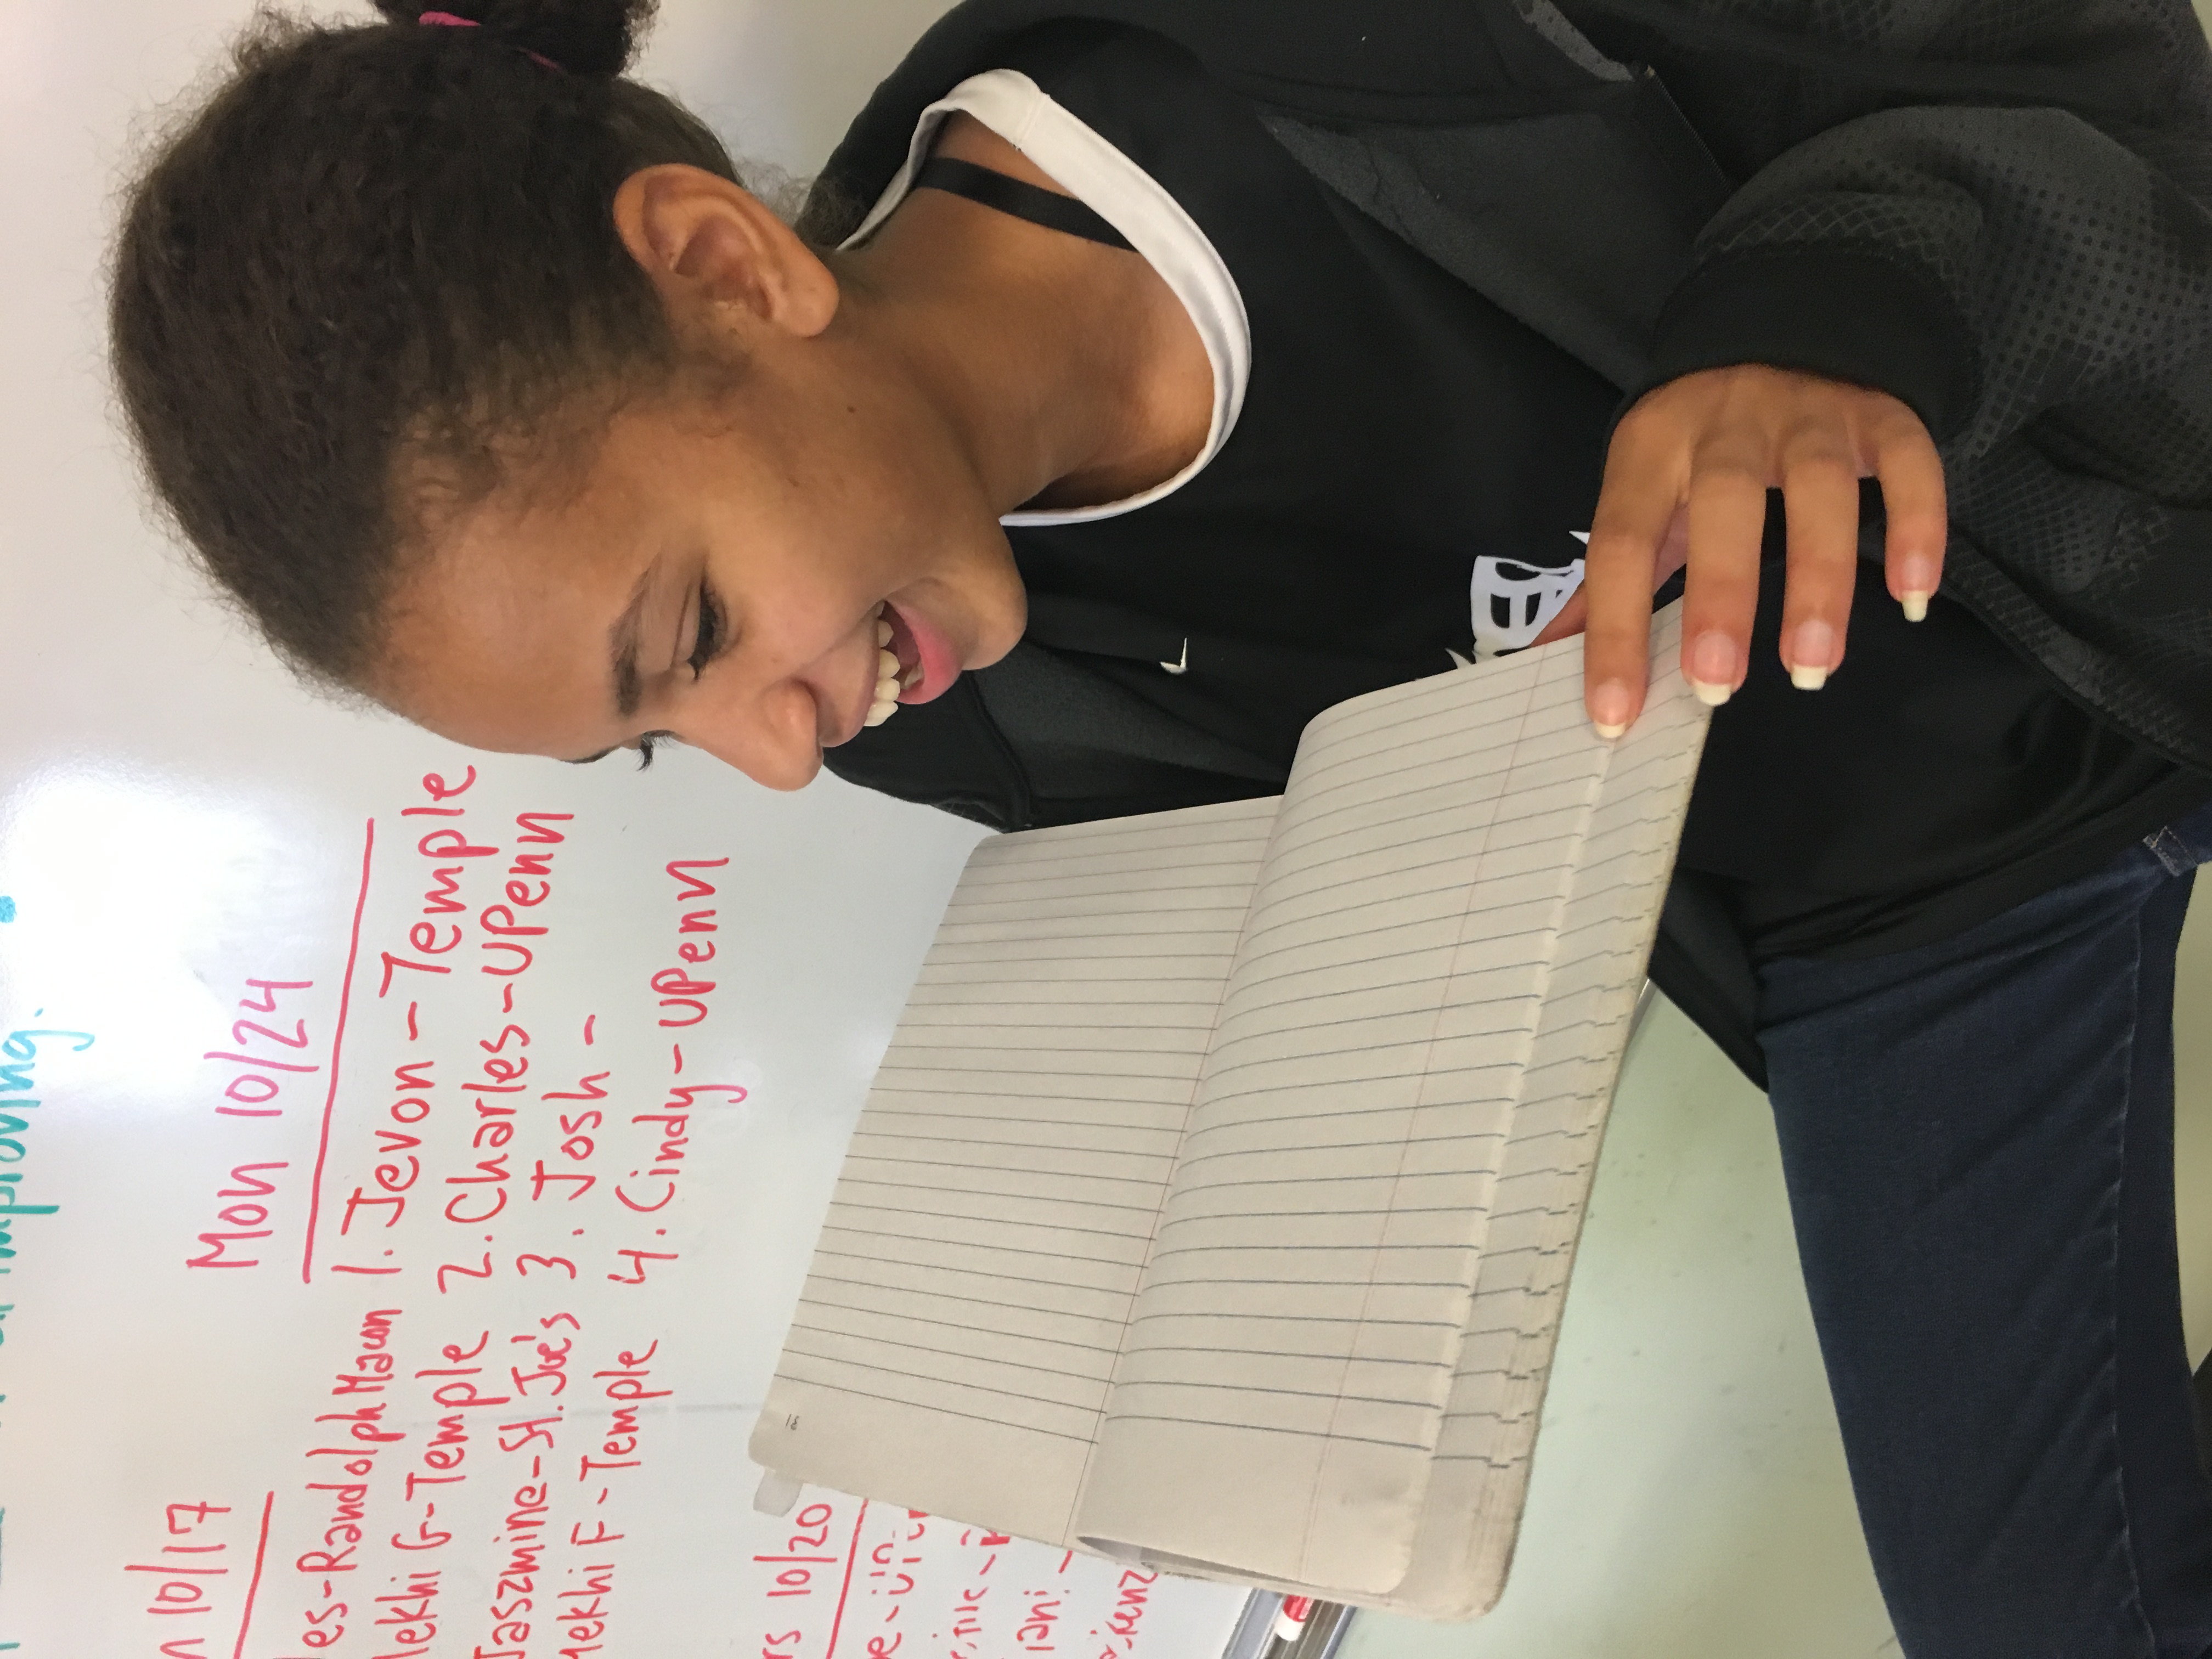 improving.
10/17
es-Randolph Macon
ekhi G-Temple
Jaszmine-St. Joe's
ekhi F-Temple
Mon 10/24
1. Jevon-Temple
2. Charles-UPenn
3. Josh-
4. Cindy-UPenn
rs 10/20